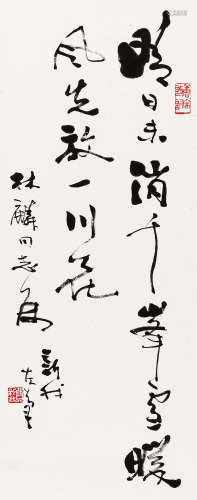 晴日未消千峯雪暖
风先放一川花
林麟同志属
新我左筆